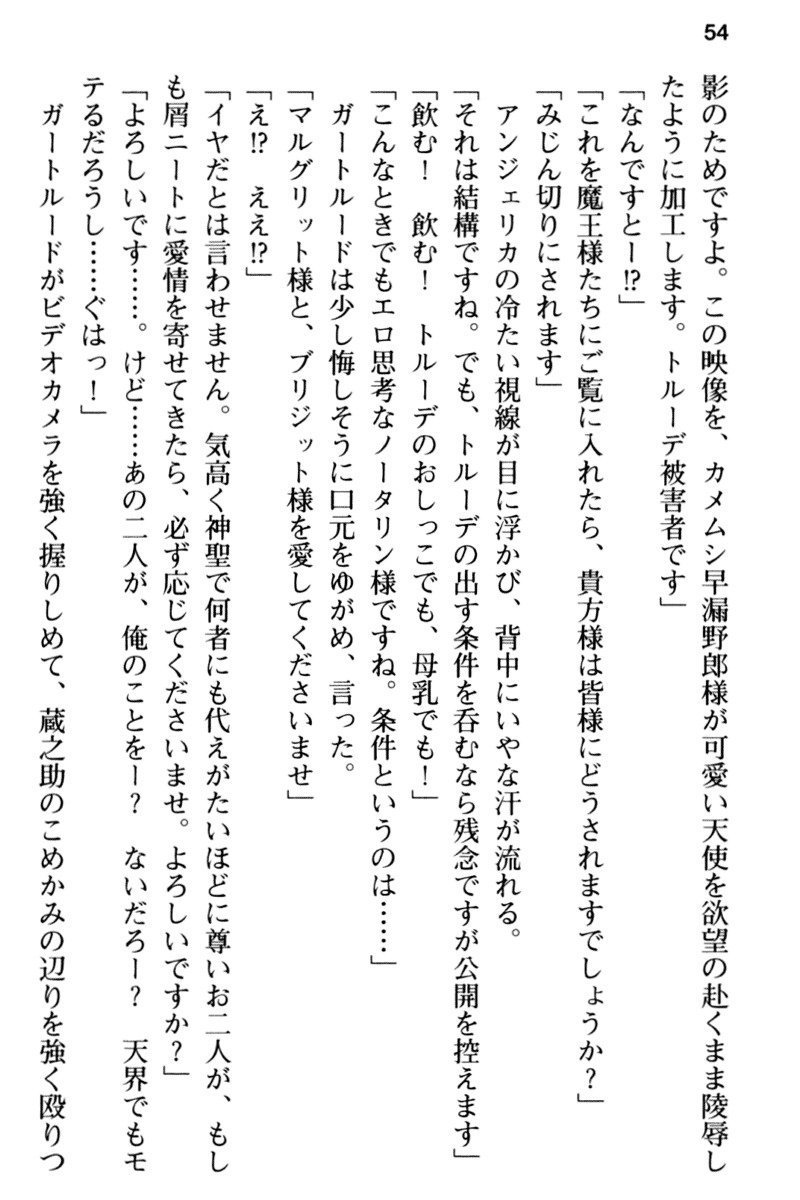 54
影のためですよ。この映像を、カメムシ早漏野郎様が可愛い天使を欲望の赴くまま陵辱し
たように加工します。トルーデ被害者です」
「なんですとー!?」
「これを魔王様たちにご覧に入れたら、貴方様は皆様にどうされますでしょうか？」
「みじん切りにされます」
　アンジェリカの冷たい視線が目に浮かび、背中にいやな汗が流れる。
「それは結構ですね。でも、トルーデの出す条件を呑むなら残念ですが公開を控えます」
「飲む！　飲む！　トルーデのおしっこでも、母乳でも！」
「こんなときでもエロ思考なノータリン様ですね。条件というのは……」
　ガートルードは少し悔しそうに口元をゆがめ、言った。
「マルグリット様と、ブリジット様を愛してくださいませ」
「え!?　ええ!?」
「イヤだとは言わせません。気高く神聖で何者にも代えがたいほどに尊いお二人が、もし
も屑ニートに愛情を寄せてきたら、必ず応じてくださいませ。よろしいですか？」
「よろしいです……。けど……あの二人が、俺のことをー？　ないだろー？　天界でもモ
テるだろうし……ぐはっ！」
　ガートルードがビデオカメラを強く握りしめて、蔵之助のこめかみの辺りを強く殴りつ